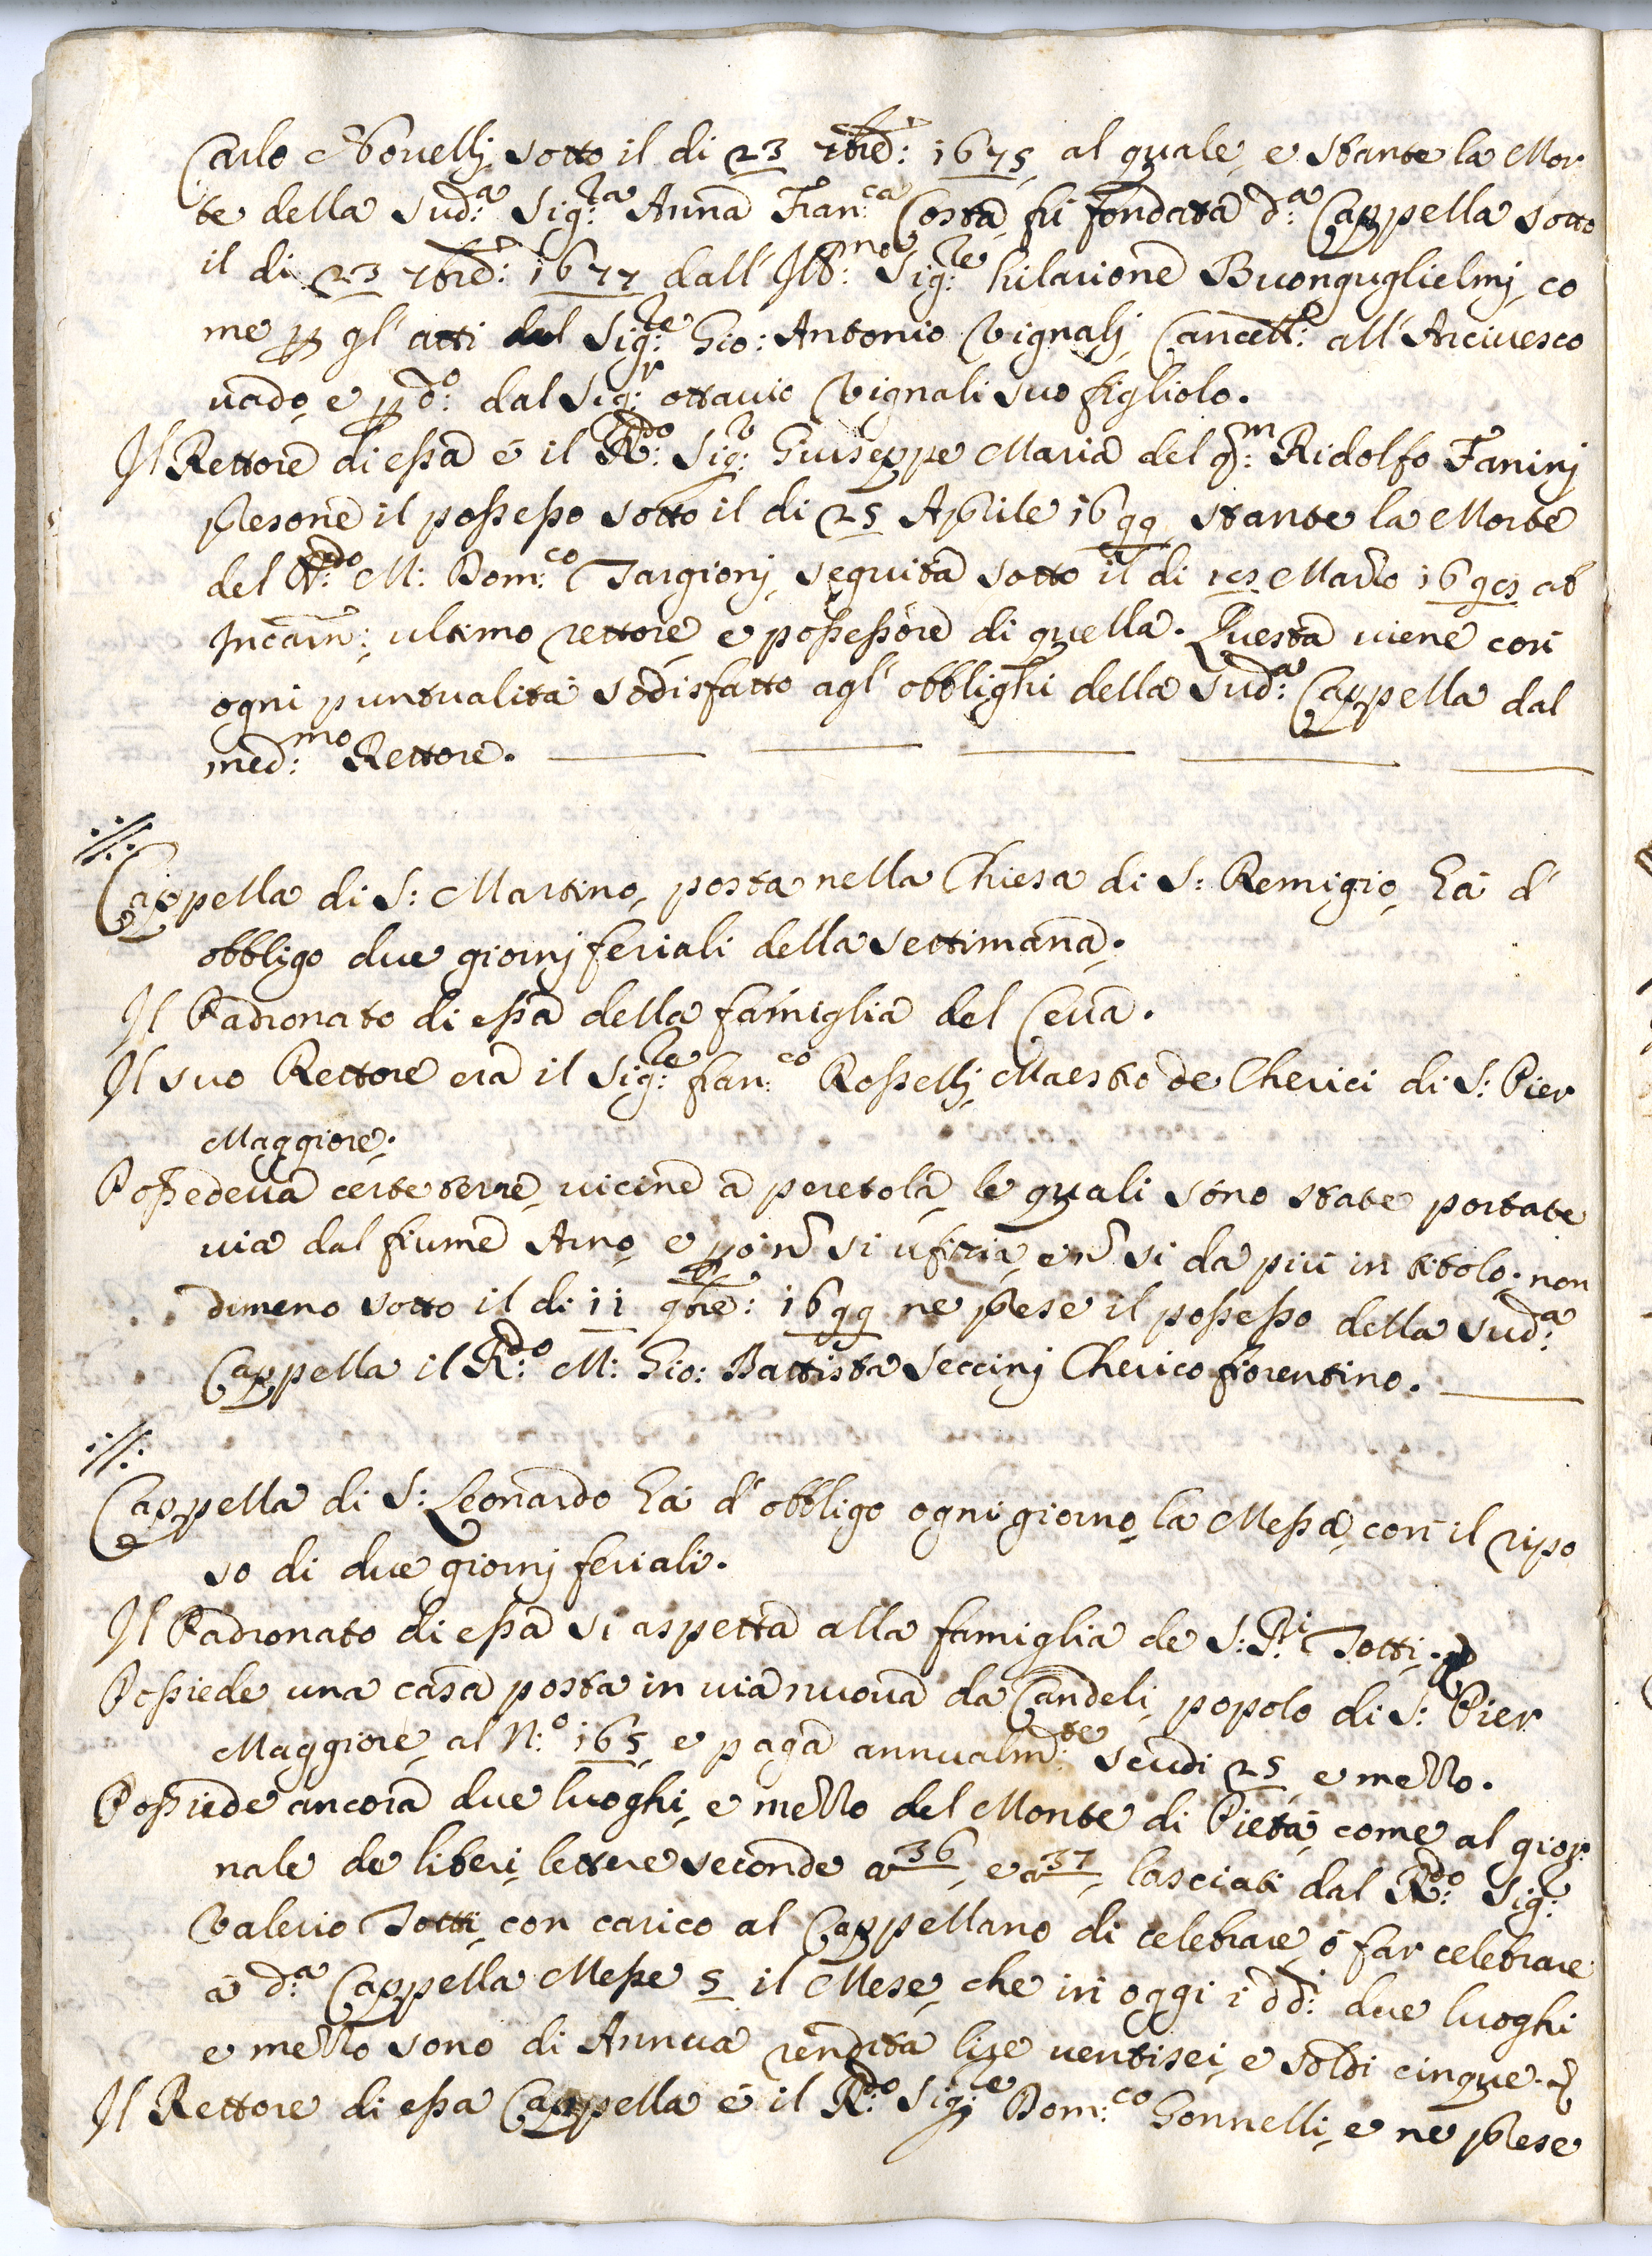 Carlo Novellj, sotto il di 23 7bre: 1675, al quale, e stante la Mor
te della Sud:a Sig:ra Anna Fran:ca Costa, fù fondata d:a Cappella sotto
il di 23 7bre: 1677 dall' Ill:mo Sig:re hilarione Buonguglielmj, co
me p gl' atti del Sig:re Gio: Antonio Vignalj, Cancell:e all' Arcivesco
vado, e p d:o dal Sig:r ottavio Vignali suo figliolo.
Il Rettore di essa é il R:do Sig:r Giuseppe Maria del q:m Ridolfo Faninj
presone il possesso sotto il di 25 Aprile 1699 stante la Morte
del R:do M: Dom:co Targionj, seguita sotto il di Marzo ab
Incarn:, ultimo rettore, e possessore di quella. Questa viene con
ogni puntualità sodisfatto agl' obblighi della Sud:a Cappella dal
med:mo Rettore.
Cappella di S: Martino, posta nella Chiesa di S: Remigio, hà d'
obbligo due giornj feriali della settimana.
Il Padronato di essa della famiglia del Ceva.
Il suo Rettore era il Sig:re fran:co Rossellj, Maestro de Cherici di S: Pier
Maggiore.
Possedeva certe terre, vicine a peretola, le quali sono state portate
via dal fiume Arno, e p ò n si ufizia, e n si da più in titolo. non
dimeno sotto il di 11 9bre: 1699 ne prese il possesso della Sud:a
Cappella il R:do M: Gio: Battista Seccinj Cherico fiorentino.
Cappella di S: Leonardo hà d' obbligo ogni giorno, la Messa, con il ripo
so di due giornj feriali.
Il Padronato di essa si aspetta alla famiglia de S:Ri Totti.
Possiede una casa posta in via nuova da Candeli, popolo di S: Pier
Maggiore, al N:o 165, e paga annualm:te scudi 25 e mezzo.
Possiede ancora due luoghi, e mezzo del Monte di Pietà, come al gior
nale de liberi, lettere seconde a 36, e a 37, lasciati dal R:do Sig:r
Valerio Totti, con carico al Cappellano di celebrare, ò far celebrare
à d:a Cappella Messe 5 il Mese, che in oggi i dd:i due luoghi
e mezzo sono di Annua rendita lire ventisei, e soldi cinque.
Il Rettore di essa Cappella é il R:do Sig:re Dom:co Gonnelli, e ne prese